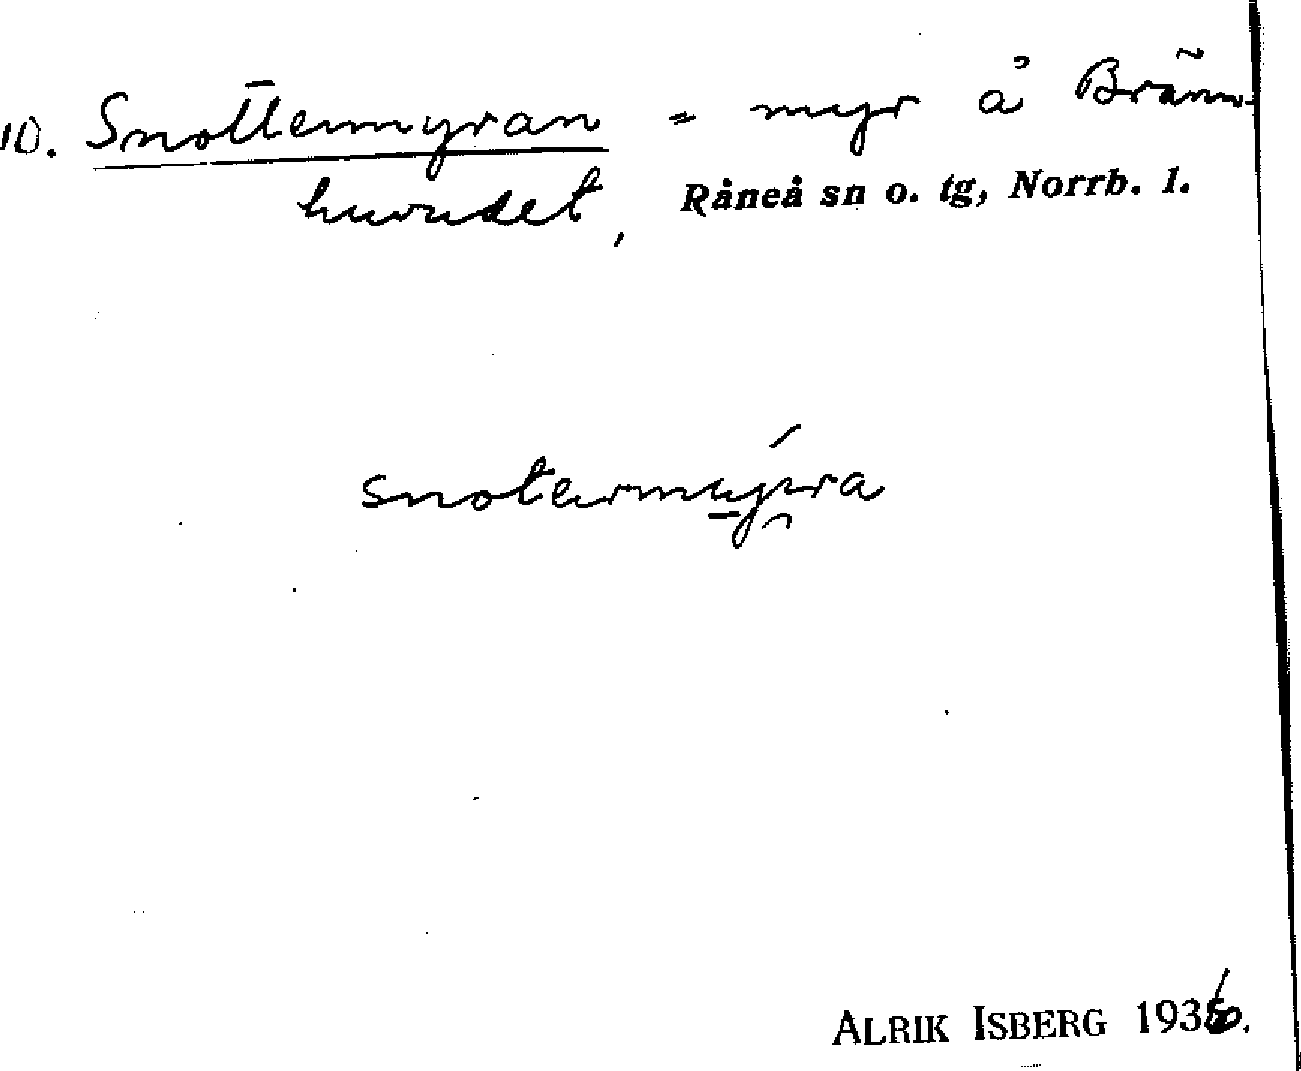 10. Snottermyran = myr å Bränn-
huvudet, Råneå sn o. tg, Norrb. l.
snotermyıra
ALRIK ISBERG 1936.